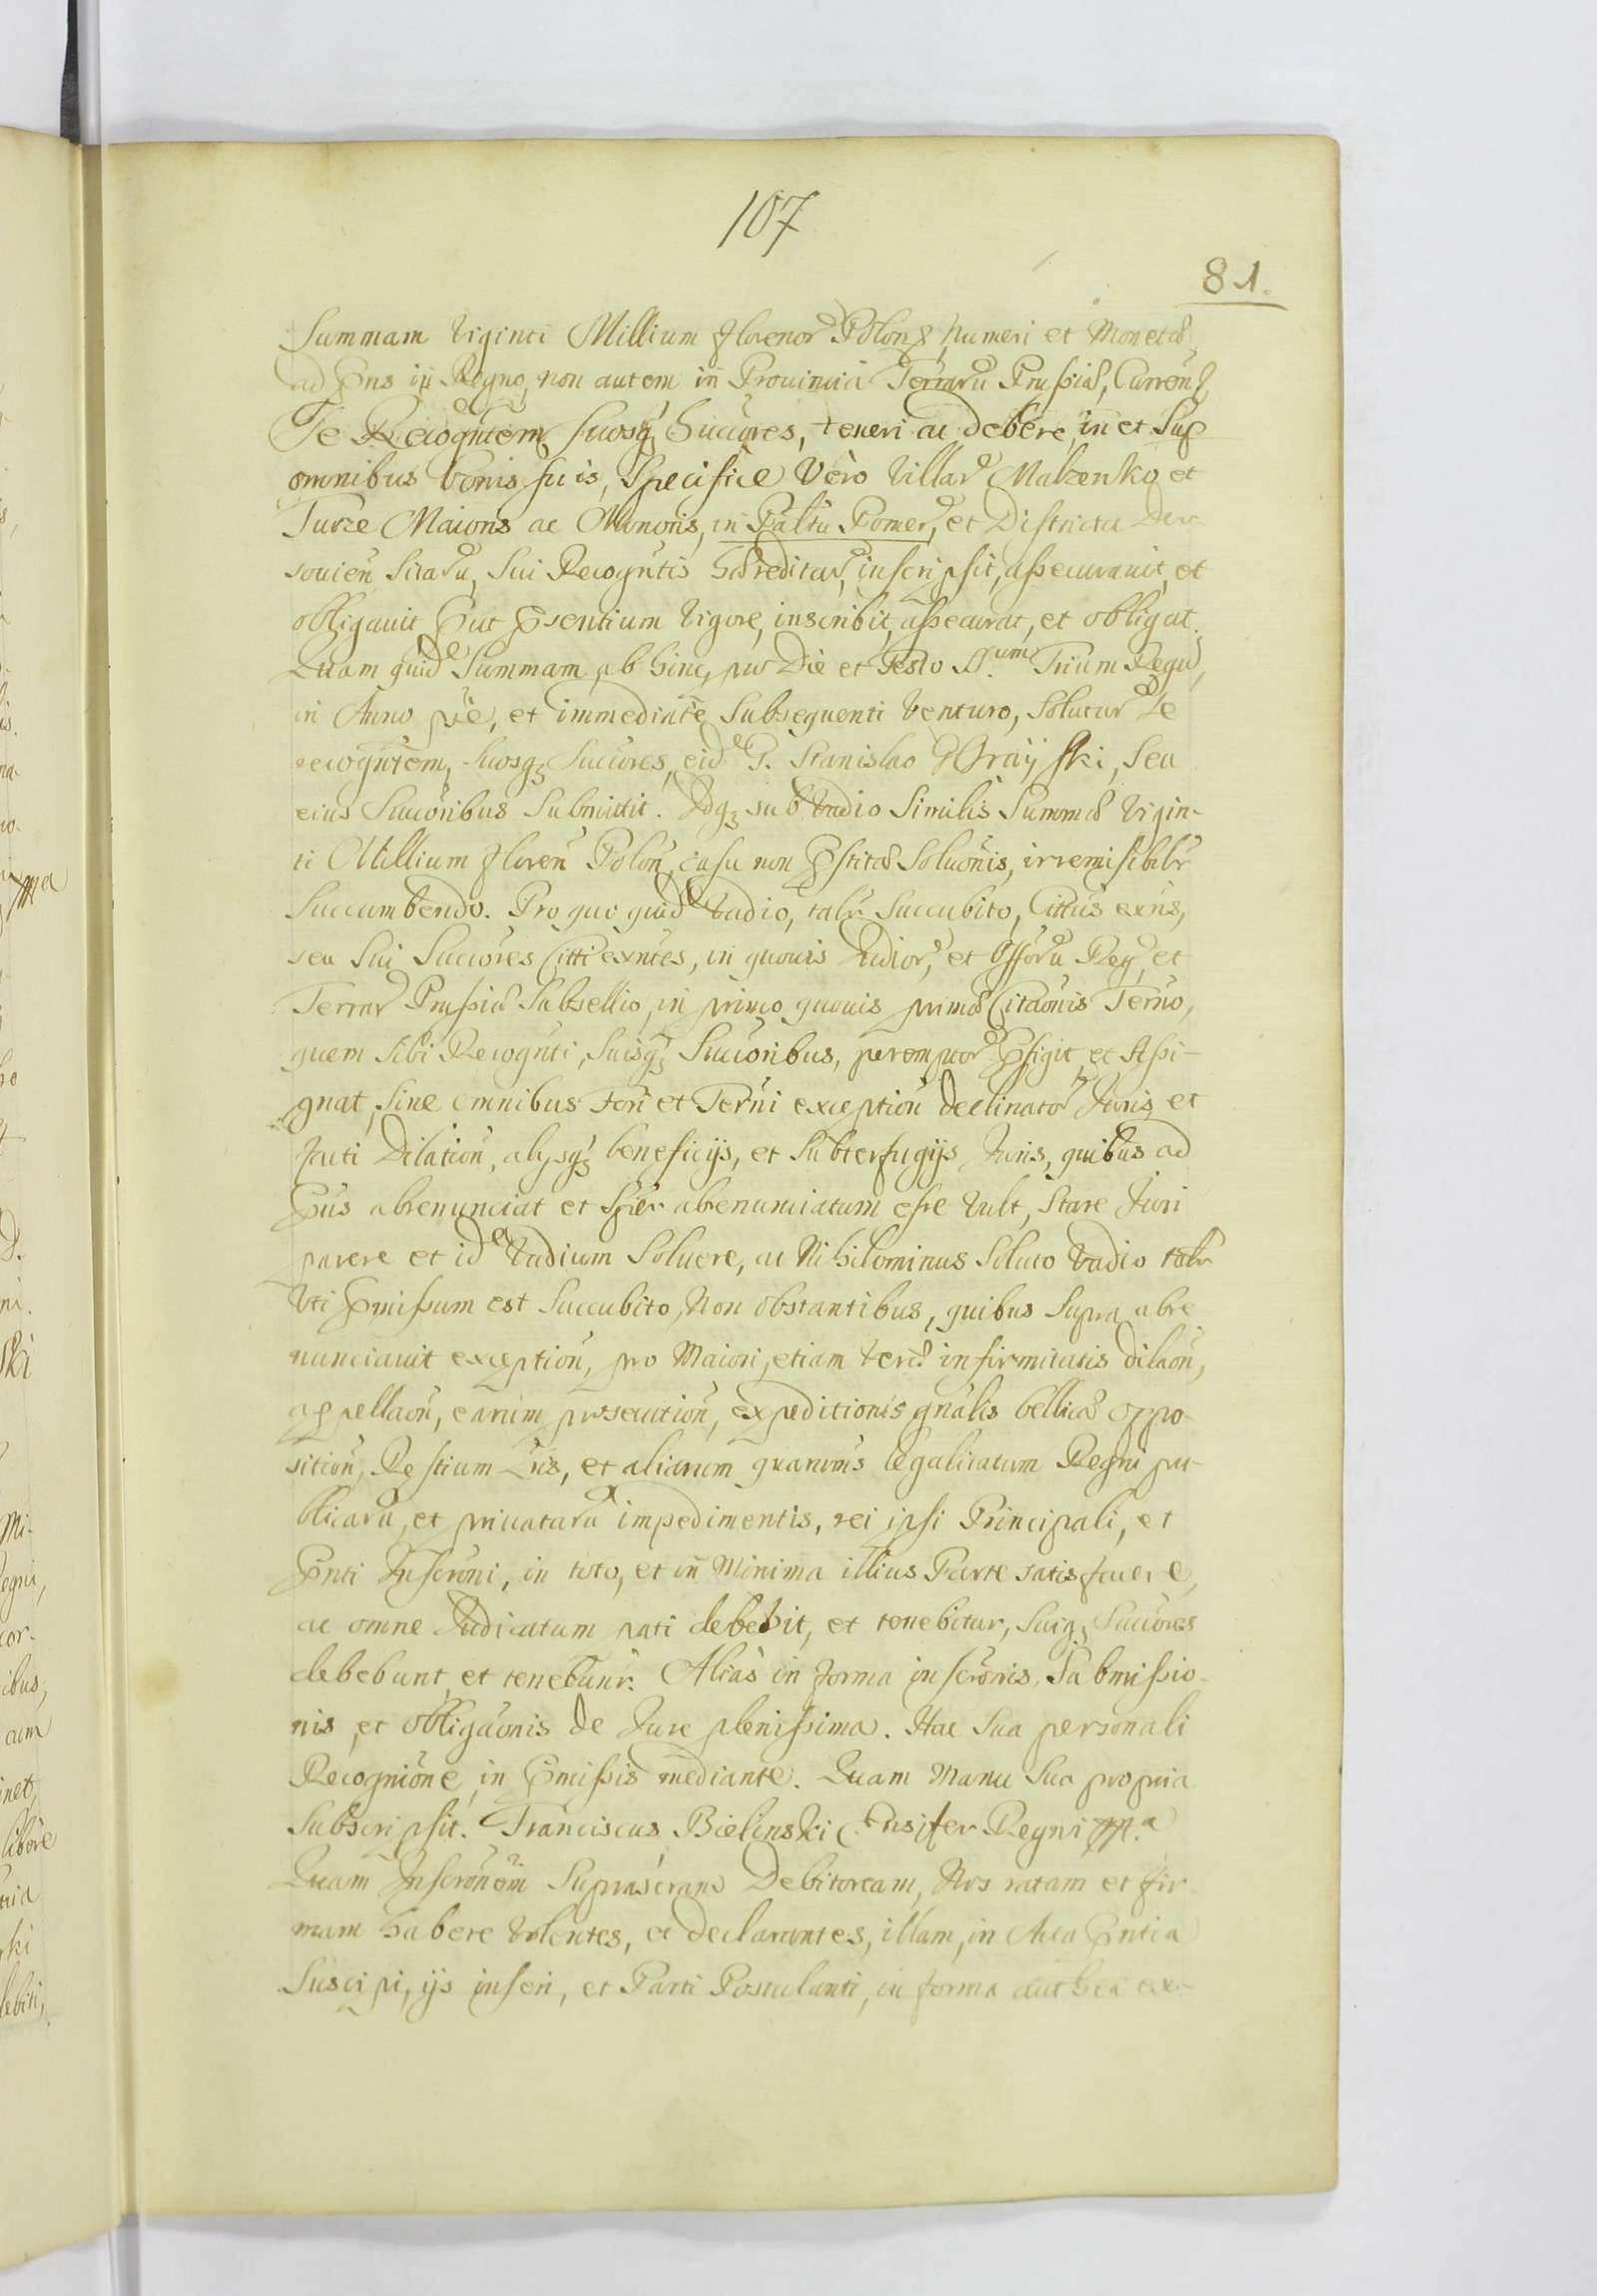 107
81.
Summam Viginti Millium florenor Polon, Numeri et Monetæ,
ad Pns in Regno, non autem in Prouincia Terraru Prussiæ, Curren,
Se Recogntem, suosq Succ̃res, teneri ac debere, in et Sup
omnibus bonis suis, Specifice Vero Villar Malzenko et
Turze Maioris ac Minoris, in Pãltu Pomer, et Districtu Der-
souien Sitaru, Sui Recogntis Hæreditar, inscripsit, assecurauit, et
obligauit Put Psentium Vigore, inscribit, assecurat, et obligat.
Quam quid Summam ab hinc, pro Die et Festo SS.um Trium Regu,
in Anno pte, et immediate Subsequenti Venturo, Solutur Se
recogntem, Suosq Succores, eid G. Stanislao Wrayski, Seu
eius Succoribus Submittit. Idq sub Vadio Similis Summæ Vigin-
ti Millium floren Polon, casu non Pstitæ Soluonis, irremisibilr
Succumbendo. Pro quo quid Vadio, talr Succubito, Cittus exns,
seu Sui Succores Citti exntes, in quouis Iudior, et Offoru Reg, et
Terrar Prussiæ Subsellio, in primo quouis primæ Citaonis Terno,
quem Sibi Recognti, Suisq Succoribus, peremptor Pfigit, et Assi-
gnat, Sine omnibus Fori et Terni exception declinator Juris et
facti Dilation, alysq beneficijs, et Subterfugijs Juris, quibus ad
Pns abrenunciat et Spler abrenunciatum esse Vult, Stare Juri
parere et id Vadium Soluere, ac Nihilominus Soluto Vadio talr
Vti Pmissum est Succubito, Non obstantibus, quibus Supra abre
nunciauit exception, pro Maiori, etiam Veræ infirmitatis dilaon,
appellaon, earum prosecution, expeditionis gnalis bellicæ oppo-
sition, Restium Lris, et aliarum quarumuis legalitatum Regni pu-
blicaru, et priuataru impedimentis, rei ipsi Principali, et
Pnti Inscroni, in toto, et in Minima illius Parte satisfacere,
ac omne Iudicatum pati debebit, et tenebitur, Suiq Succores
debebunt, et tenebunr. Alias in forma inscronis, Submissio-
nis, et obligaonis de Jure plenissima. Hac Sua personali
Recognione, in Pmissis mediante. Quam Manu Sua propria
Subscripsit. Franciscus Bielinski Ensifer Regni mp.a
Quam Inscronem Suprascram Debitoream, Nos ratam et fir-
mam habere Volentes, et declarantes, illam, in Acta Pntia
Suscipi, ijs inseri, et Parti Postulanti, in forma authca ex-